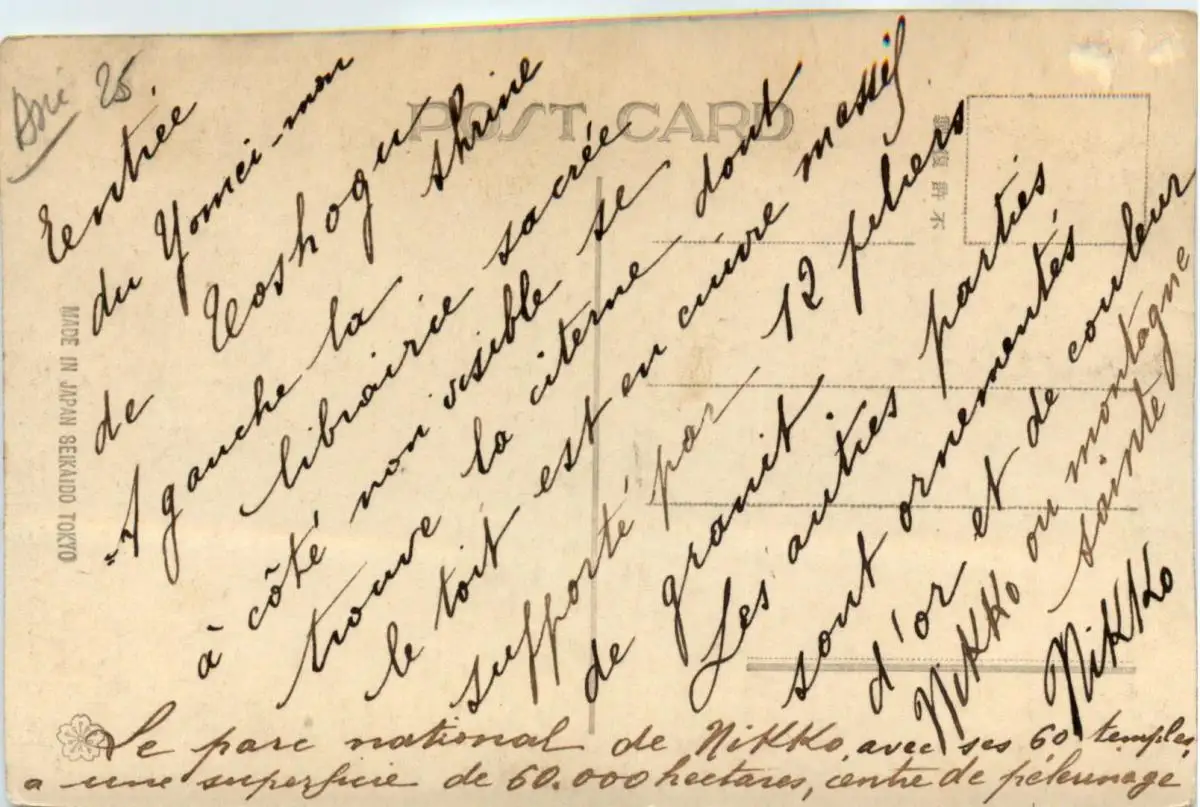 Asie 25
POST CARD
不許複製
MADE IN JAPAN SEIKAIDO TOKYO
Entrée
du Yomei-mon
de Toshogu shrine
A gauche la
librairie sacrée
à côté non visible se
trouve la citerne dont
le toit est en cuivre massif
supporté par 12 piliers
de granit
Les autres parties
sont ornementés
d'or et de couleur
Nikko ou montagne
sainte
Nikko
Le parc national de Nikko, avec ses 60 temples,
a une superficie de 60.000 hectares, centre de pélerinage